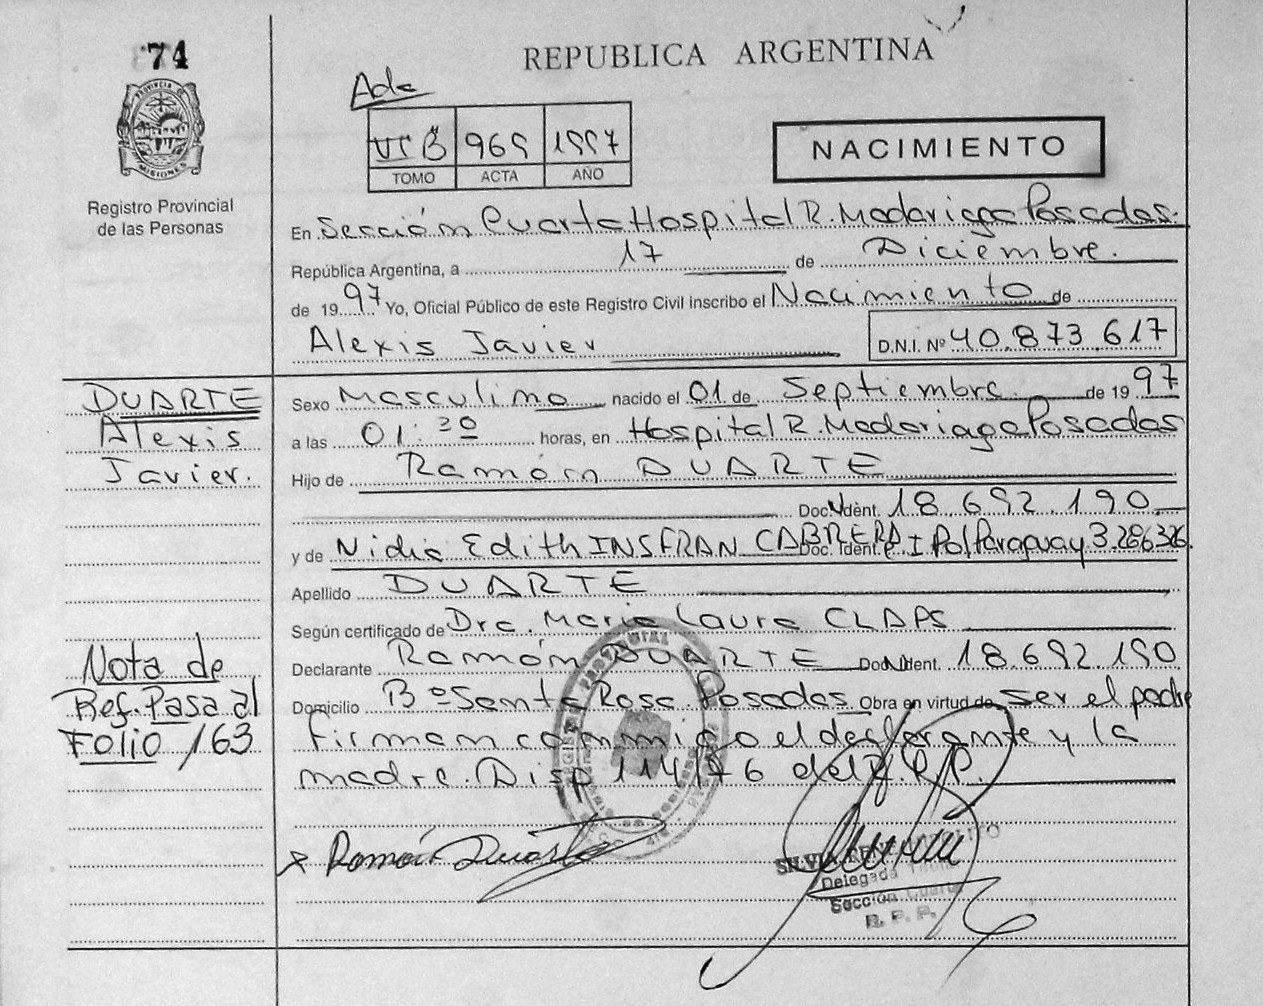 74
REPUBLICA ARGENTINA
Ada
VIB 969 1997
TOMO ACTA AÑO
NACIMIENTO
PROVINCIA DE MISIONES
Registro Provincial
de las Personas
En Sección Cuarta Hospital R. Madariaga Posadas.
República Argentina, a 17 de Diciembre.
de 1997 Yo, Oficial Público de este Registro Civil inscribo el Nacimiento de
Alexis Javier D.N.I. Nº 40.873.617
DUARTE
Alexis
Javier.
Sexo Masculino nacido el 01 de Septiembre. de 1997
a las 01:30 horas, en Hospital R. Madariaga Posadas
Hijo de Ramón DUARTE
Doc. Ident. 18.692.190
y de Nidia Edith INSFRAN CABRERA Doc. Ident. C I Pol Paraguay 3.286.326.
Apellido DUARTE
Según certificado de Dra. Maria Laura CLAPS
Declarante Ramón DUARTE Doc. Ident. 18.692.190
Domicilio Bº Santa Rosa Posadas Obra en virtud de ser el padre
firman conmigo el declarante y la
madre. Disp 114/76 del R.P.P.
Nota de
Ref. Pasa al
Folio 163
x Ramón Duarte
Delegada
Sección Cuarta
R. P. P.